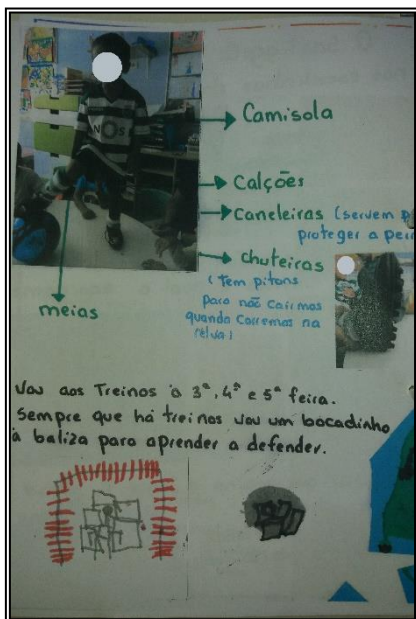 NOS
Camisola
Calções
Caneleiras (servem p
proteger a per
chuteiras
(Tem pitons
para não Cairmos
quando Corremos na
relva)
meias
Vou aos Treinos à 3ª, 4ª e 5ª feira.
Sempre que há treinos vou um bocadinho
à baliza para aprender a defender.